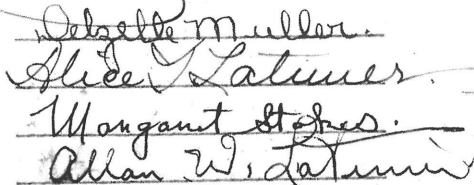 Delzelle Muller.
Alice Y Latimer.
Margaret Stokes.
Allan W. Latimer